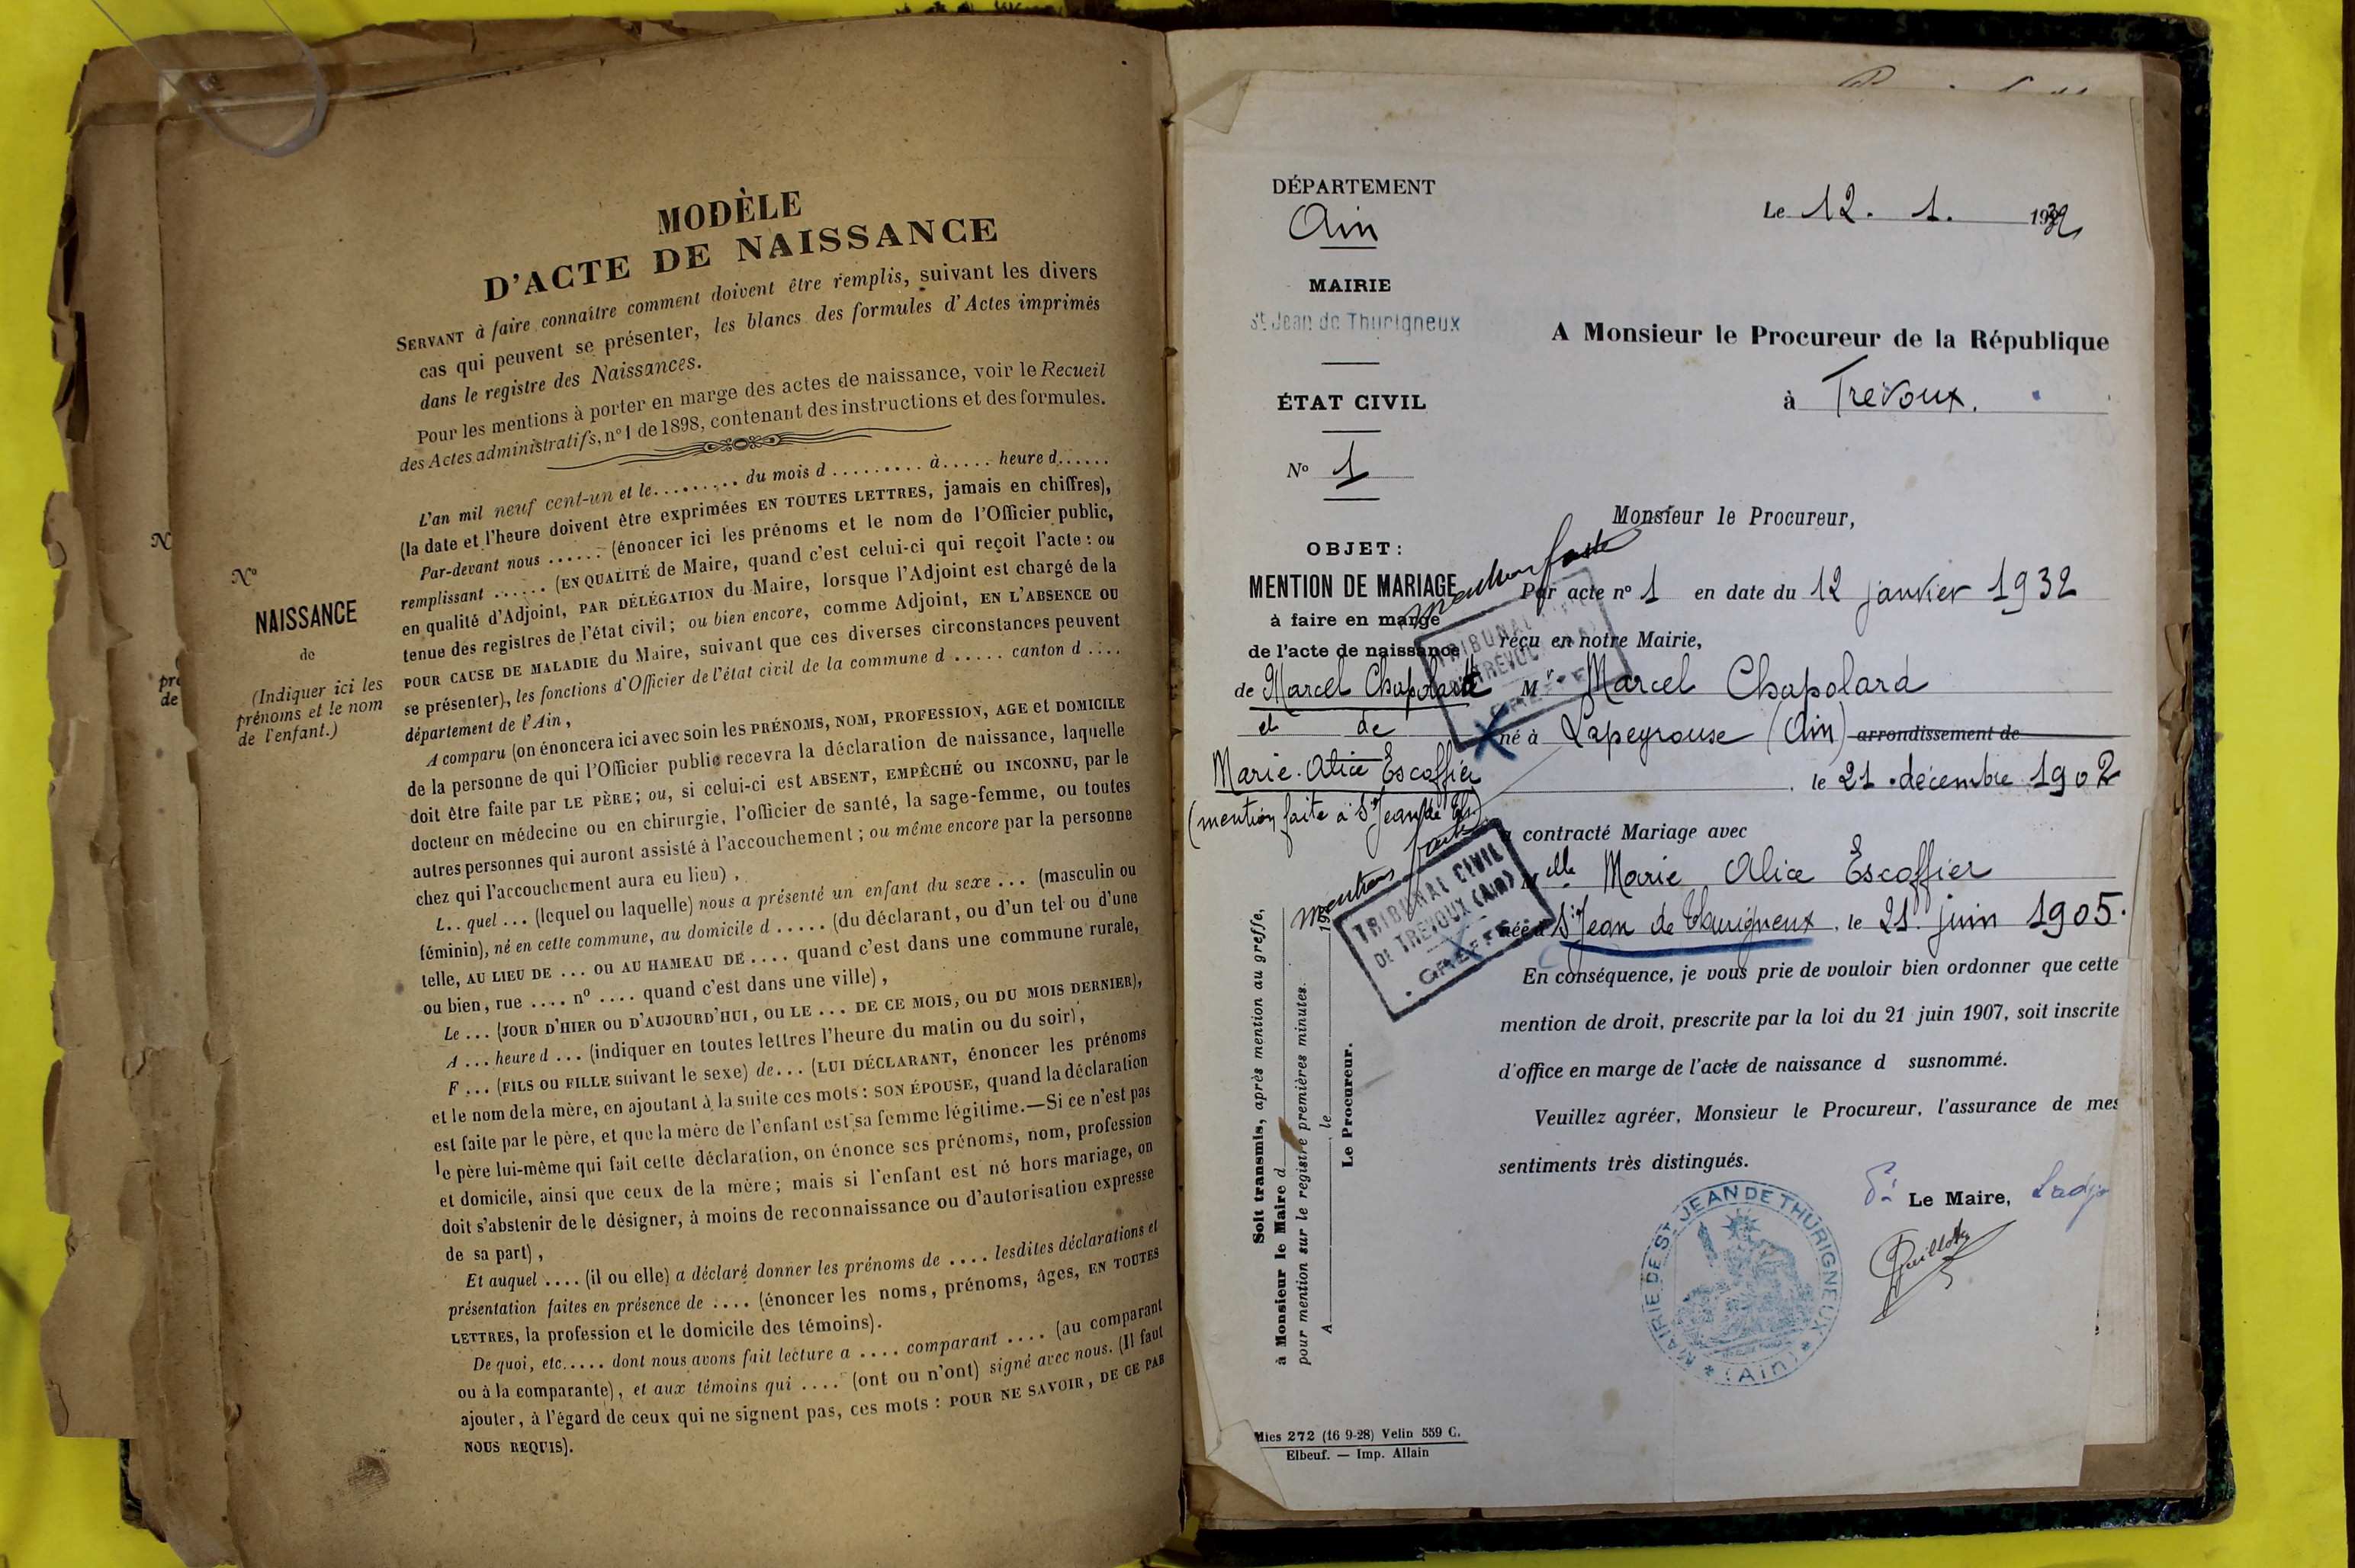 MODÈLE
D'ACTE DE NAISSANCE
SERVANT à faire connaître comment doivent être remplis, suivant les divers
cas qui peuvent se présenter, les blancs des formules d'Actes imprimés
dans le registre des Naissances.
Pour les mentions à porter en marge des actes de naissance, voir le Recueil
des Actes administratifs, n° 1 de 1898, contenant des instructions et des formules.
N°
NAISSANCE
de
(Indiquer ici les
prénoms et le nom
de l'enfant.)
L'an mil neuf cent-un et le......... du mois d ......... à..... heure d......
(la date et l'heure doivent être exprimées EN TOUTES LETTRES, jamais en chiffres),
Par-devant nous ...... (énoncer ici les prénoms et le nom de l'Officier public,
remplissant ...... (EN QUALITÉ de Maire, quand c'est celui-ci qui reçoit l'acte : ou
en qualité d'Adjoint, PAR DÉLÉGATION du Maire, lorsque l'Adjoint est chargé de la
tenue des registres de l'état civil; ou bien encore, comme Adjoint, EN L'ABSENCE OU
POUR CAUSE DE MALADIE du Maire, suivant que ces diverses circonstances peuvent
se présenter), les fonctions d'Officier de l'état civil de la commune d ..... canton d ....
département de l'Ain,
A comparu (on énoncera ici avec soin les PRÉNOMS, NOM, PROFESSION, AGE et DOMICILE
de la personne de qui l'Officier public recevra la déclaration de naissance, laquelle
doit être faite par LE PÈRE; ou, si celui-ci est ABSENT, EMPÊCHÉ OU INCONNU, par le
docteur en médecine ou en chirurgie, l'officier de santé, la sage-femme, ou toutes
autres personnes qui auront assisté à l'accouchement; ou même encore par la personne
chez qui l'accouchement aura eu lieu),
L..quel ... (lequel ou laquelle) nous a présenté un enfant du sexe ... (masculin ou
féminin), né en cette commune, au domicile d ..... (du déclarant, ou d'un tel ou d'une
telle, AU LIEU DE ... OU AU HAMEAU DE .... quand c'est dans une commune rurale,
ou bien, rue .... n° .... quand c'est dans une ville),
Le ... (JOUR D'HIER OU D'AUJOURD'HUI, OU LE ... DE CE MOIS, OU DU MOIS DERNIER),
A ... heure d ... (indiquer en toutes lettres l'heure du matin ou du soir),
F ... (FILS OU FILLE suivant le sexe) de... (LUI DÉCLARANT, énoncer les prénoms
et le nom de la mère, en ajoutant à la suite ces mots : SON ÉPOUSE, quand la déclaration
est faite par le père, et que la mère de l'enfant est sa femme légitime.—Si ce n'est pas
le père lui-même qui fait cette déclaration, on énonce ses prénoms, nom, profession
et domicile, ainsi que ceux de la mère; mais si l'enfant est né hors mariage, on
doit s'abstenir de le désigner, à moins de reconnaissance ou d'autorisation expresse
de sa part),
Et auquel .... (il ou elle) a déclaré donner les prénoms de .... lesdites déclarations et
présentation faites en présence de .... (énoncer les noms, prénoms, âges, EN TOUTES
LETTRES, la profession et le domicile des témoins).
De quoi, etc..... dont nous avons fait lecture a .... comparant .... (au comparant
ou à la comparante), et aux témoins qui .... (ont ou n'ont) signé avec nous. (Il faut
ajouter, à l'égard de ceux qui ne signent pas, ces mots : POUR NE SAVOIR, DE CE PAR
NOUS REQUIS).
DÉPARTEMENT
Ain
MAIRIE
St Jean de Thurigneux
ÉTAT CIVIL
N° 1
OBJET :
MENTION DE MARIAGE
à faire en marge
de l'acte de naissance
de Marcel Chapolard
et de
Marie-Alice Escoffier
(mention faite à St Jean de Th)
mention faite
TRIBUNAL CIVIL
DE TREVOUX (Ain)
GREFFE
mention faite
TRIBUNAL CIVIL
DE TREVOUX (Ain)
GREFFE
Soit transmis, après mention au greffe,
à Monsieur le Maire d
pour mention sur le registre premières minutes.
A , le 19
Le Procureur.
Mies 272 (16 9-28) Velin 559 C.
Elbeuf. — Imp. Allain
Le 12. 1. 1932
A Monsieur le Procureur de la République
à Trévoux.
Monsieur le Procureur,
Par acte n° 1 en date du 12 janvier 1932
reçu en notre Mairie,
Mr. Marcel Chapolard
né à Lapeyrouse (Ain) arrondissement de
le 21 décembre 1902
contracté Mariage avec
Melle Marie Alice Escoffier
née à St Jean de Thurigneux, le 21 juin 1905.
En conséquence, je vous prie de vouloir bien ordonner que cette
mention de droit, prescrite par la loi du 21 juin 1907, soit inscrite
d'office en marge de l'acte de naissance d susnommé.
Veuillez agréer, Monsieur le Procureur, l'assurance de mes
sentiments très distingués.
Le Maire,
MAIRIE DE ST JEAN DE THURIGNEUX
(Ain)